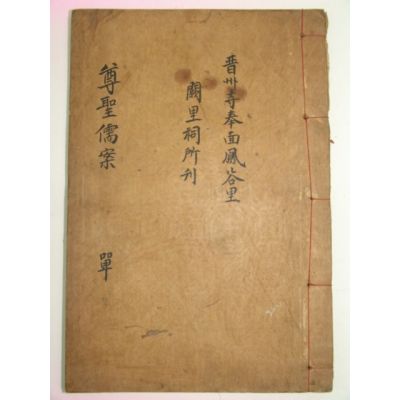 晋州奉面鳳谷里
闕里祠所刋
尊聖儒案 單